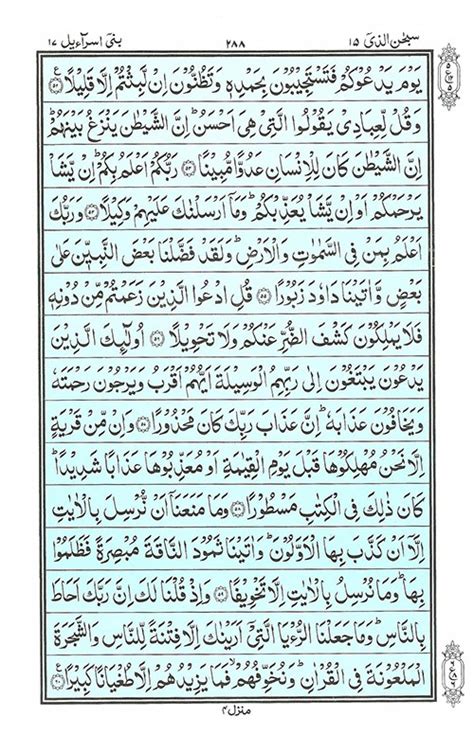 سبحٰن الذی ۱۵ ۲۸۸ بنی اسرآءیل ۱۷
یَوۡمَ یَدۡعُوۡکُمۡ فَتَسۡتَجِیۡبُوۡنَ بِحَمۡدِہٖ وَتَظُنُّوۡنَ اِنۡ لَّبِثۡتُمۡ اِلَّا قَلِیۡلًا ﴿۵۲﴾
وَقُلۡ لِّعِبَادِیۡ یَقُوۡلُوا الَّتِیۡ ہِیَ اَحۡسَنُ ؕ اِنَّ الشَّیۡطٰنَ یَنۡزَغُ بَیۡنَہُمۡ ؕ
اِنَّ الشَّیۡطٰنَ کَانَ لِلۡاِنۡسَانِ عَدُوًّا مُّبِیۡنًا ﴿۵۳﴾ رَبُّکُمۡ اَعۡلَمُ بِکُمۡ ؕ اِنۡ یَّشَاۡ
یَرۡحَمۡکُمۡ اَوۡ اِنۡ یَّشَاۡ یُعَذِّبۡکُمۡ ؕ وَمَاۤ اَرۡسَلۡنٰکَ عَلَیۡہِمۡ وَکِیۡلًا ﴿۵۴﴾ وَرَبُّکَ
اَعۡلَمُ بِمَنۡ فِی السَّمٰوٰتِ وَالۡاَرۡضِ ؕ وَلَقَدۡ فَضَّلۡنَا بَعۡضَ النَّبِیّٖنَ عَلٰی
بَعۡضٍ وَّاٰتَیۡنَا دَاوٗدَ زَبُوۡرًا ﴿۵۵﴾ قُلِ ادۡعُوا الَّذِیۡنَ زَعَمۡتُمۡ مِّنۡ دُوۡنِہٖ
فَلَا یَمۡلِکُوۡنَ کَشۡفَ الضُّرِّ عَنۡکُمۡ وَلَا تَحۡوِیۡلًا ﴿۵۶﴾ اُولٰٓئِکَ الَّذِیۡنَ
یَدۡعُوۡنَ یَبۡتَغُوۡنَ اِلٰی رَبِّہِمُ الۡوَسِیۡلَۃَ اَیُّہُمۡ اَقۡرَبُ وَیَرۡجُوۡنَ رَحۡمَتَہٗ
وَیَخَافُوۡنَ عَذَابَہٗ ؕ اِنَّ عَذَابَ رَبِّکَ کَانَ مَحۡذُوۡرًا ﴿۵۷﴾ وَاِنۡ مِّنۡ قَرۡیَۃٍ
اِلَّا نَحۡنُ مُہۡلِکُوۡہَا قَبۡلَ یَوۡمِ الۡقِیٰمَۃِ اَوۡ مُعَذِّبُوۡہَا عَذَابًا شَدِیۡدًا ؕ
کَانَ ذٰلِکَ فِی الۡکِتٰبِ مَسۡطُوۡرًا ﴿۵۸﴾ وَمَا مَنَعَنَاۤ اَنۡ نُّرۡسِلَ بِالۡاٰیٰتِ
اِلَّاۤ اَنۡ کَذَّبَ بِہَا الۡاَوَّلُوۡنَ ؕ وَاٰتَیۡنَا ثَمُوۡدَ النَّاقَۃَ مُبۡصِرَۃً فَظَلَمُوۡا
بِہَا ؕ وَمَا نُرۡسِلُ بِالۡاٰیٰتِ اِلَّا تَخۡوِیۡفًا ﴿۵۹﴾ وَاِذۡ قُلۡنَا لَکَ اِنَّ رَبَّکَ اَحَاطَ
بِالنَّاسِ ؕ وَمَا جَعَلۡنَا الرُّءۡیَا الَّتِیۡۤ اَرَیۡنٰکَ اِلَّا فِتۡنَۃً لِّلنَّاسِ وَالشَّجَرَۃَ
الۡمَلۡعُوۡنَۃَ فِی الۡقُرۡاٰنِ ؕ وَنُخَوِّفُہُمۡ ۙ فَمَا یَزِیۡدُہُمۡ اِلَّا طُغۡیَانًا کَبِیۡرًا ﴿۶۰﴾
منزل ۴